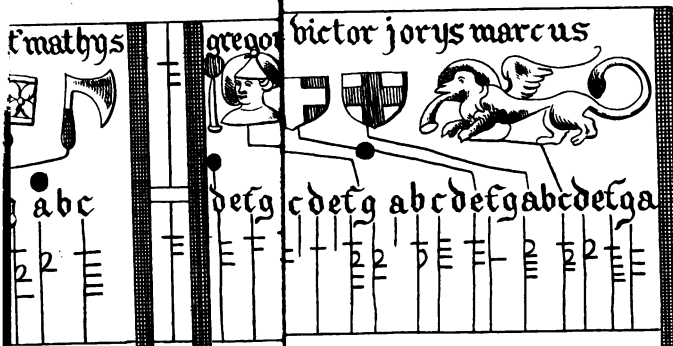 mathys gregor victor jorys marcus
abc defg cdefg abcdefgabcdefga